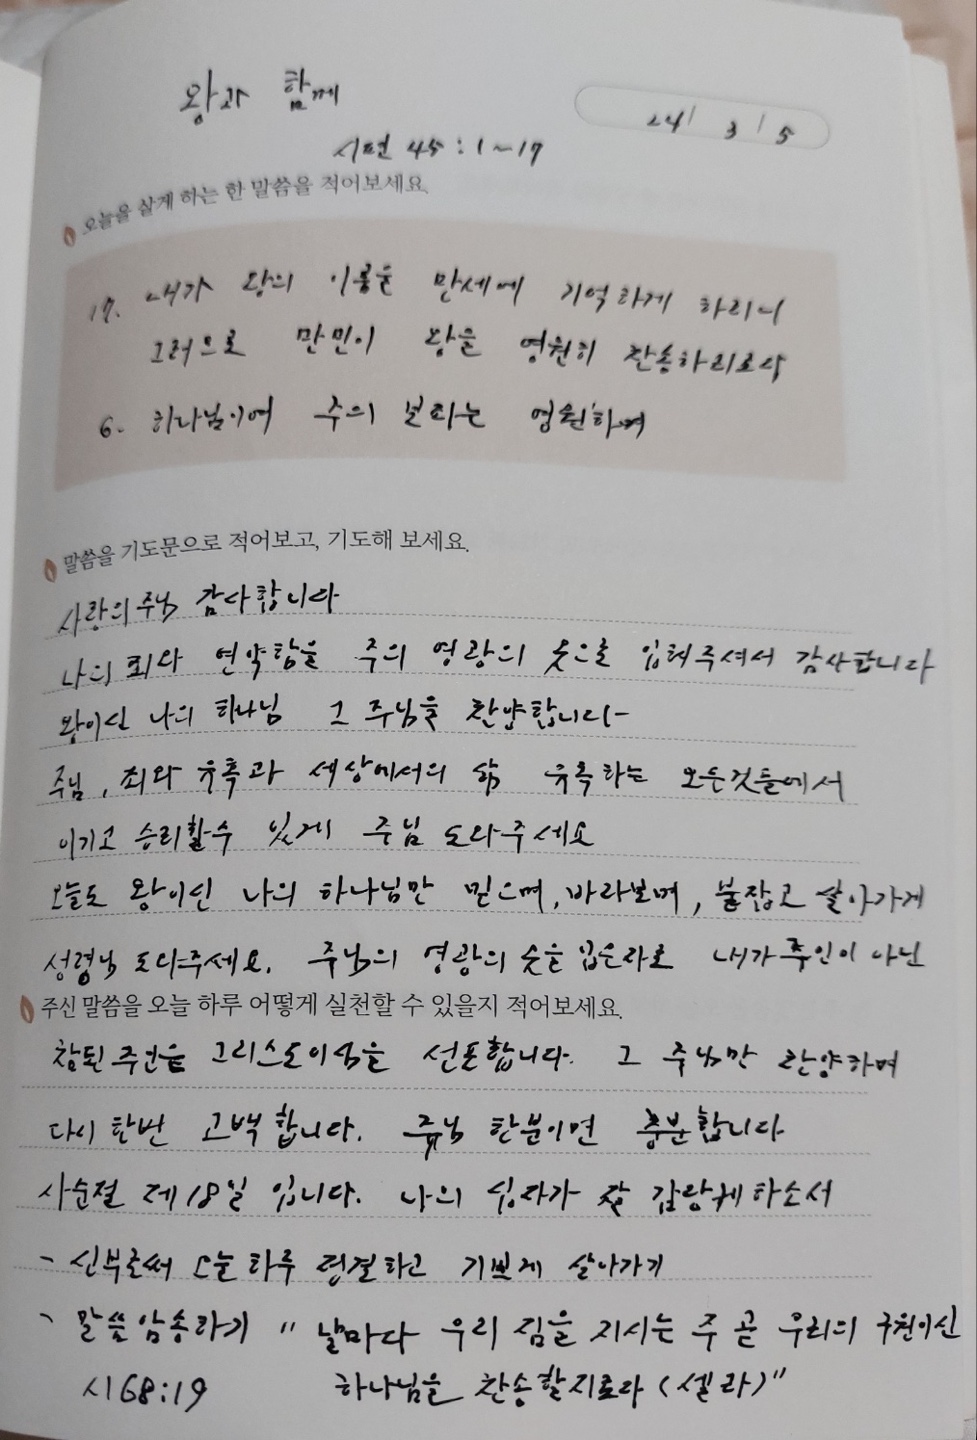 왕과 함께
24/ 3 / 5
시편 45 : 1~17
오늘을 살게 하는 한 말씀을 적어보세요.
17. 내가 왕의 이름을 만세에 기억하게 하리니
그러므로 만민이 왕을 영원히 찬송하리로다
6. 하나님이여 주의 보좌는 영원하며
말씀을 기도문으로 적어보고, 기도해 보세요.
사랑의 주님 감사합니다
나의 죄와 연약함을 주의 영광의 옷으로 입혀주셔서 감사합니다
왕이신 나의 하나님 그 주님을 찬양합니다-
주님, 죄와 유혹과 세상에서의 삶 유혹하는 모든것들에서
이기고 승리할수 있게 주님 도와주세요
오늘도 왕이신 나의 하나님만 믿으며, 바라보며, 붙잡고 살아가게
성령님 도와주세요. 주님의 영광의 옷을 입은자로 내가 주인이 아닌
주신 말씀을 오늘 하루 어떻게 실천할 수 있을지 적어보세요.
참된 주인은 그리스도이심을 선포합니다. 그 주님만 찬양하며
다시 한번 고백합니다. 주님 한분이면 충분합니다
사순절 제18일 입니다. 나의 십자가 잘 감당케하소서
- 신부로써 오늘 하루 정결하고 기쁘게 살아가기
- 말씀암송하기 " 날마다 우리 짐을 지시는 주 곧 우리의 구원이신
시68:19 하나님을 찬송할지로다 (셀라)"